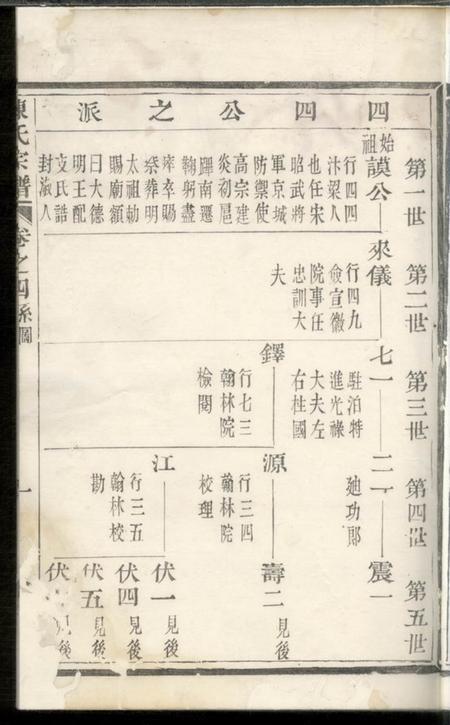 四四公之派
第一世
第二世
第三世
第四世
第五世
始祖
謨公
行四四
汴梁人
也任宋
昭武將
軍京城
防禦使
高宗建
炎初扈
蹕南遷
鞠躬盡
瘁卒賜
祭葬明
太祖勅
賜廟額
曰大德
明王配
支氏誥
封淑人
來儀
行四九
僉宣徽
院事任
忠訓大
夫
七一
駐泊特
進光祿
大夫左
右柱國
鐸
行七三
翰林院
檢閱
二一
廸功郎
源
行三四
翰林院
校理
江
行三五
翰林校
勘
震一
壽二
見後
伏一
見後
伏四
見後
伏五
見後
伏
見後
陳氏宗譜
卷之四系圖
一